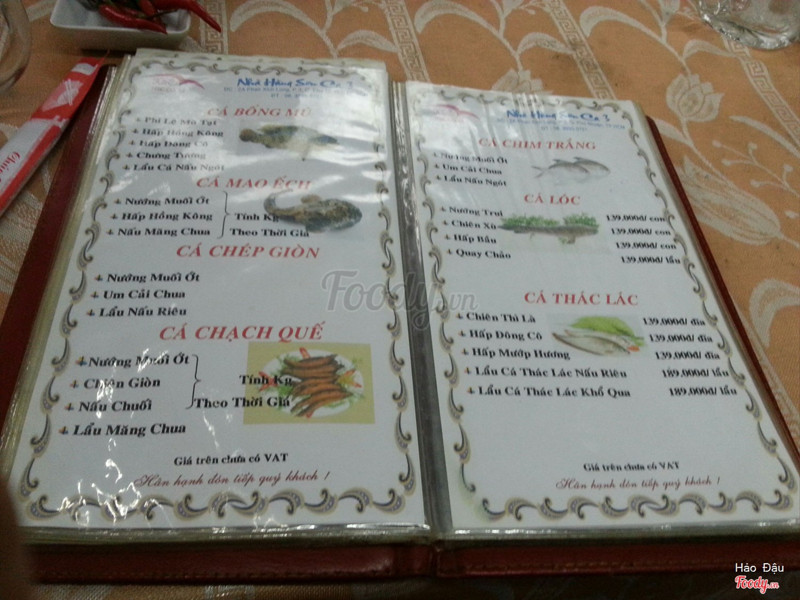 Nhà Hàng Sơn Ca 3
CÁ BỐNG MÚ
Phi Lê Mù Tạt
Hấp Hồng Kông
Hấp Đông Cô
Chưng Tương
Lẩu Cá Nấu Ngót
CÁ MAO ẾCH
Nướng Muối Ớt
Hấp Hồng Kông
Nấu Măng Chua
Tính Kg
Theo Thời Giá
CÁ CHÉP GIÒN
Nướng Muối Ớt
Um Cải Chua
Lẩu Nấu Riêu
CÁ CHẠCH QUẾ
Nướng Muối Ớt
Chiên Giòn
Nấu Chuối
Lẩu Măng Chua
Tính Kg
Theo Thời Giá
Giá trên chưa có VAT
Hân hạnh đón tiếp quý khách !
Nhà Hàng Sơn Ca 3
CÁ CHIM TRẮNG
Nướng Muối Ớt
Um Cải Chua
Lẩu Nấu Ngót
CÁ LÓC
Nướng Trui 139.000đ/ con
Chiên Xù 139.000đ/ con
Hấp Bầu 139.000đ/ con
Quay Chảo 139.000đ/ lẩu
CÁ THÁC LÁC
Chiên Thì Là 139.000đ/ đĩa
Hấp Đông Cô 139.000đ/ đĩa
Hấp Mướp Hương 139.000đ/ đĩa
Lẩu Cá Thác Lác Nấu Riêu 189.000đ/ lẩu
Lẩu Cá Thác Lác Khổ Qua 189.000đ/ lẩu
Giá trên chưa có VAT
Hân hạnh đón tiếp quý khách !
Foody.vn
Hảo Đậu
Foody.vn